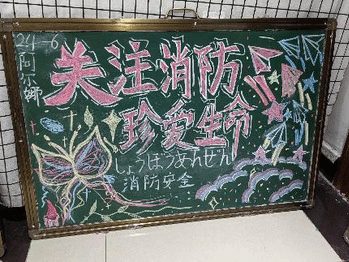 24-6
关注消防
珍爱生命
しょうぼうあんぜん
消防安全